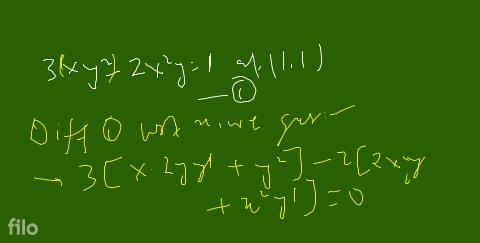 3(xy²) - 2x²y = 1 at (1,1)
— ①
Diff ① wrt x, we get:-
→ 3[x·2yy' + y²] - 2[2xy
+ x²y'] = 0
filo